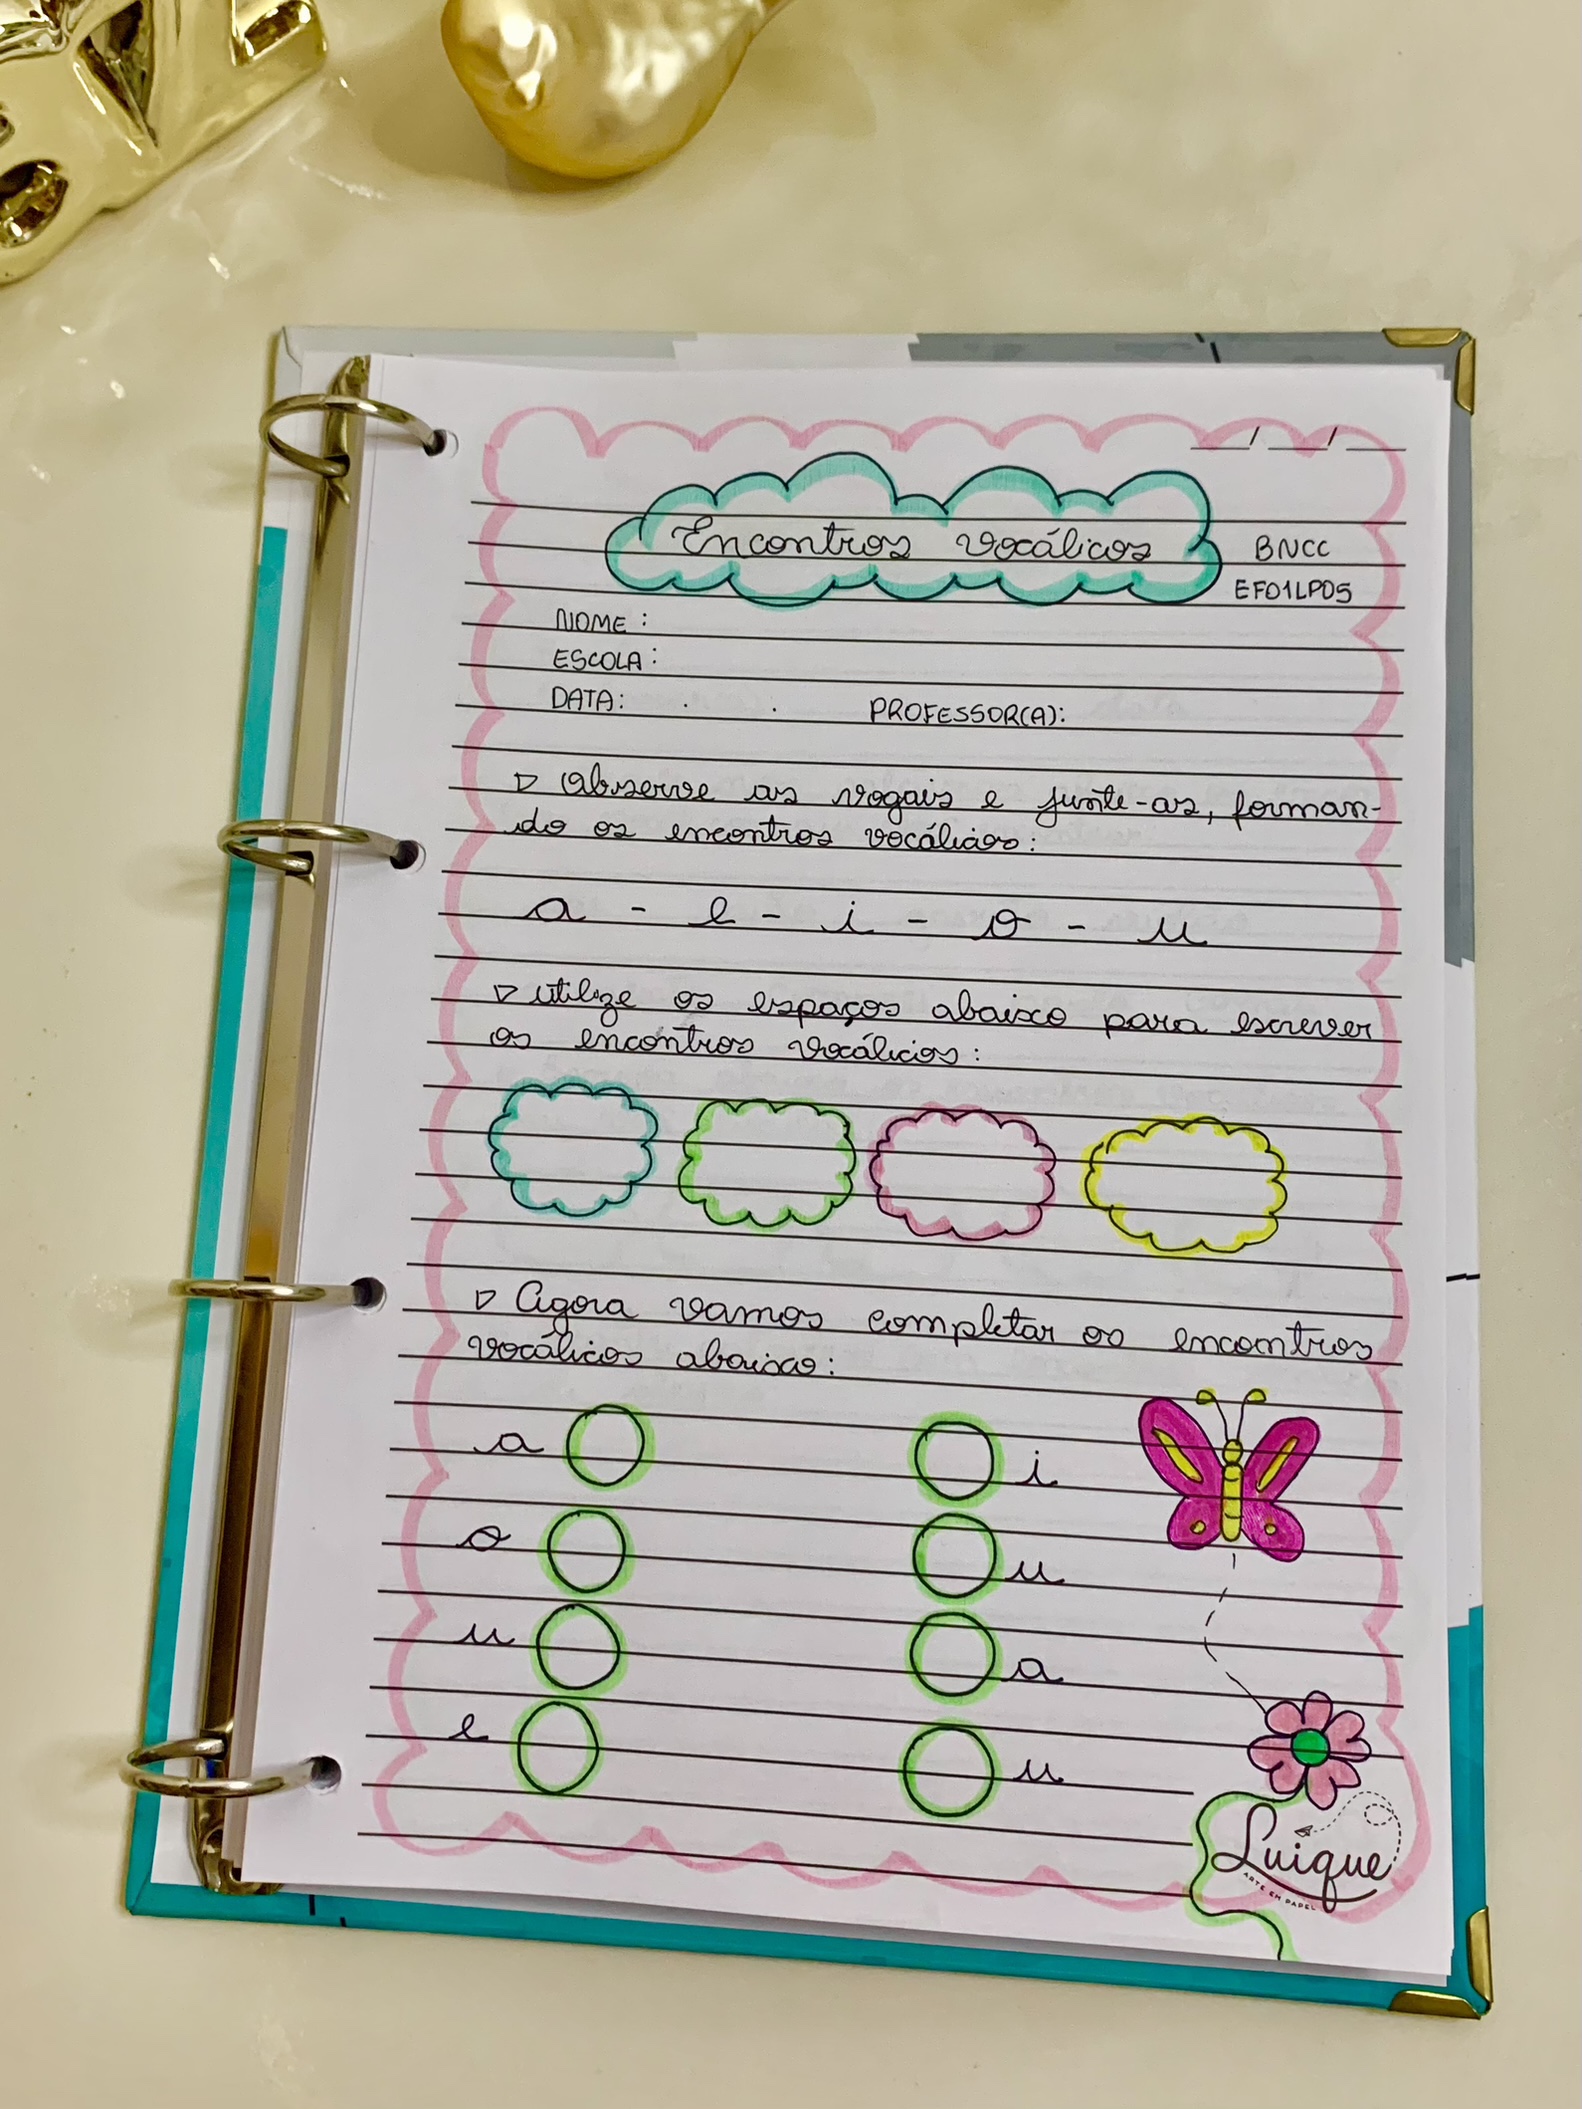 __/__/__
Encontros vocálicos
BNCC
EF01LP05
NOME:
ESCOLA:
DATA: . . PROFESSOR(A):
▷ Observe as vogais e junte-as, forman-
do os encontros vocálicos:
a - e - i - o - u
▷ utilize os espaços abaixo para escrever
os encontros vocálicos:
▷ Agora vamos completar os encontros
vocálicos abaixo:
a i
o u
u a
e u
Luique
ARTE EM PAPEL